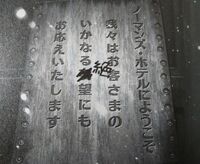 ノーマンズ・ホテルにようこそ
我々はお客さまの
いかなる絶望にも
お応えいたします